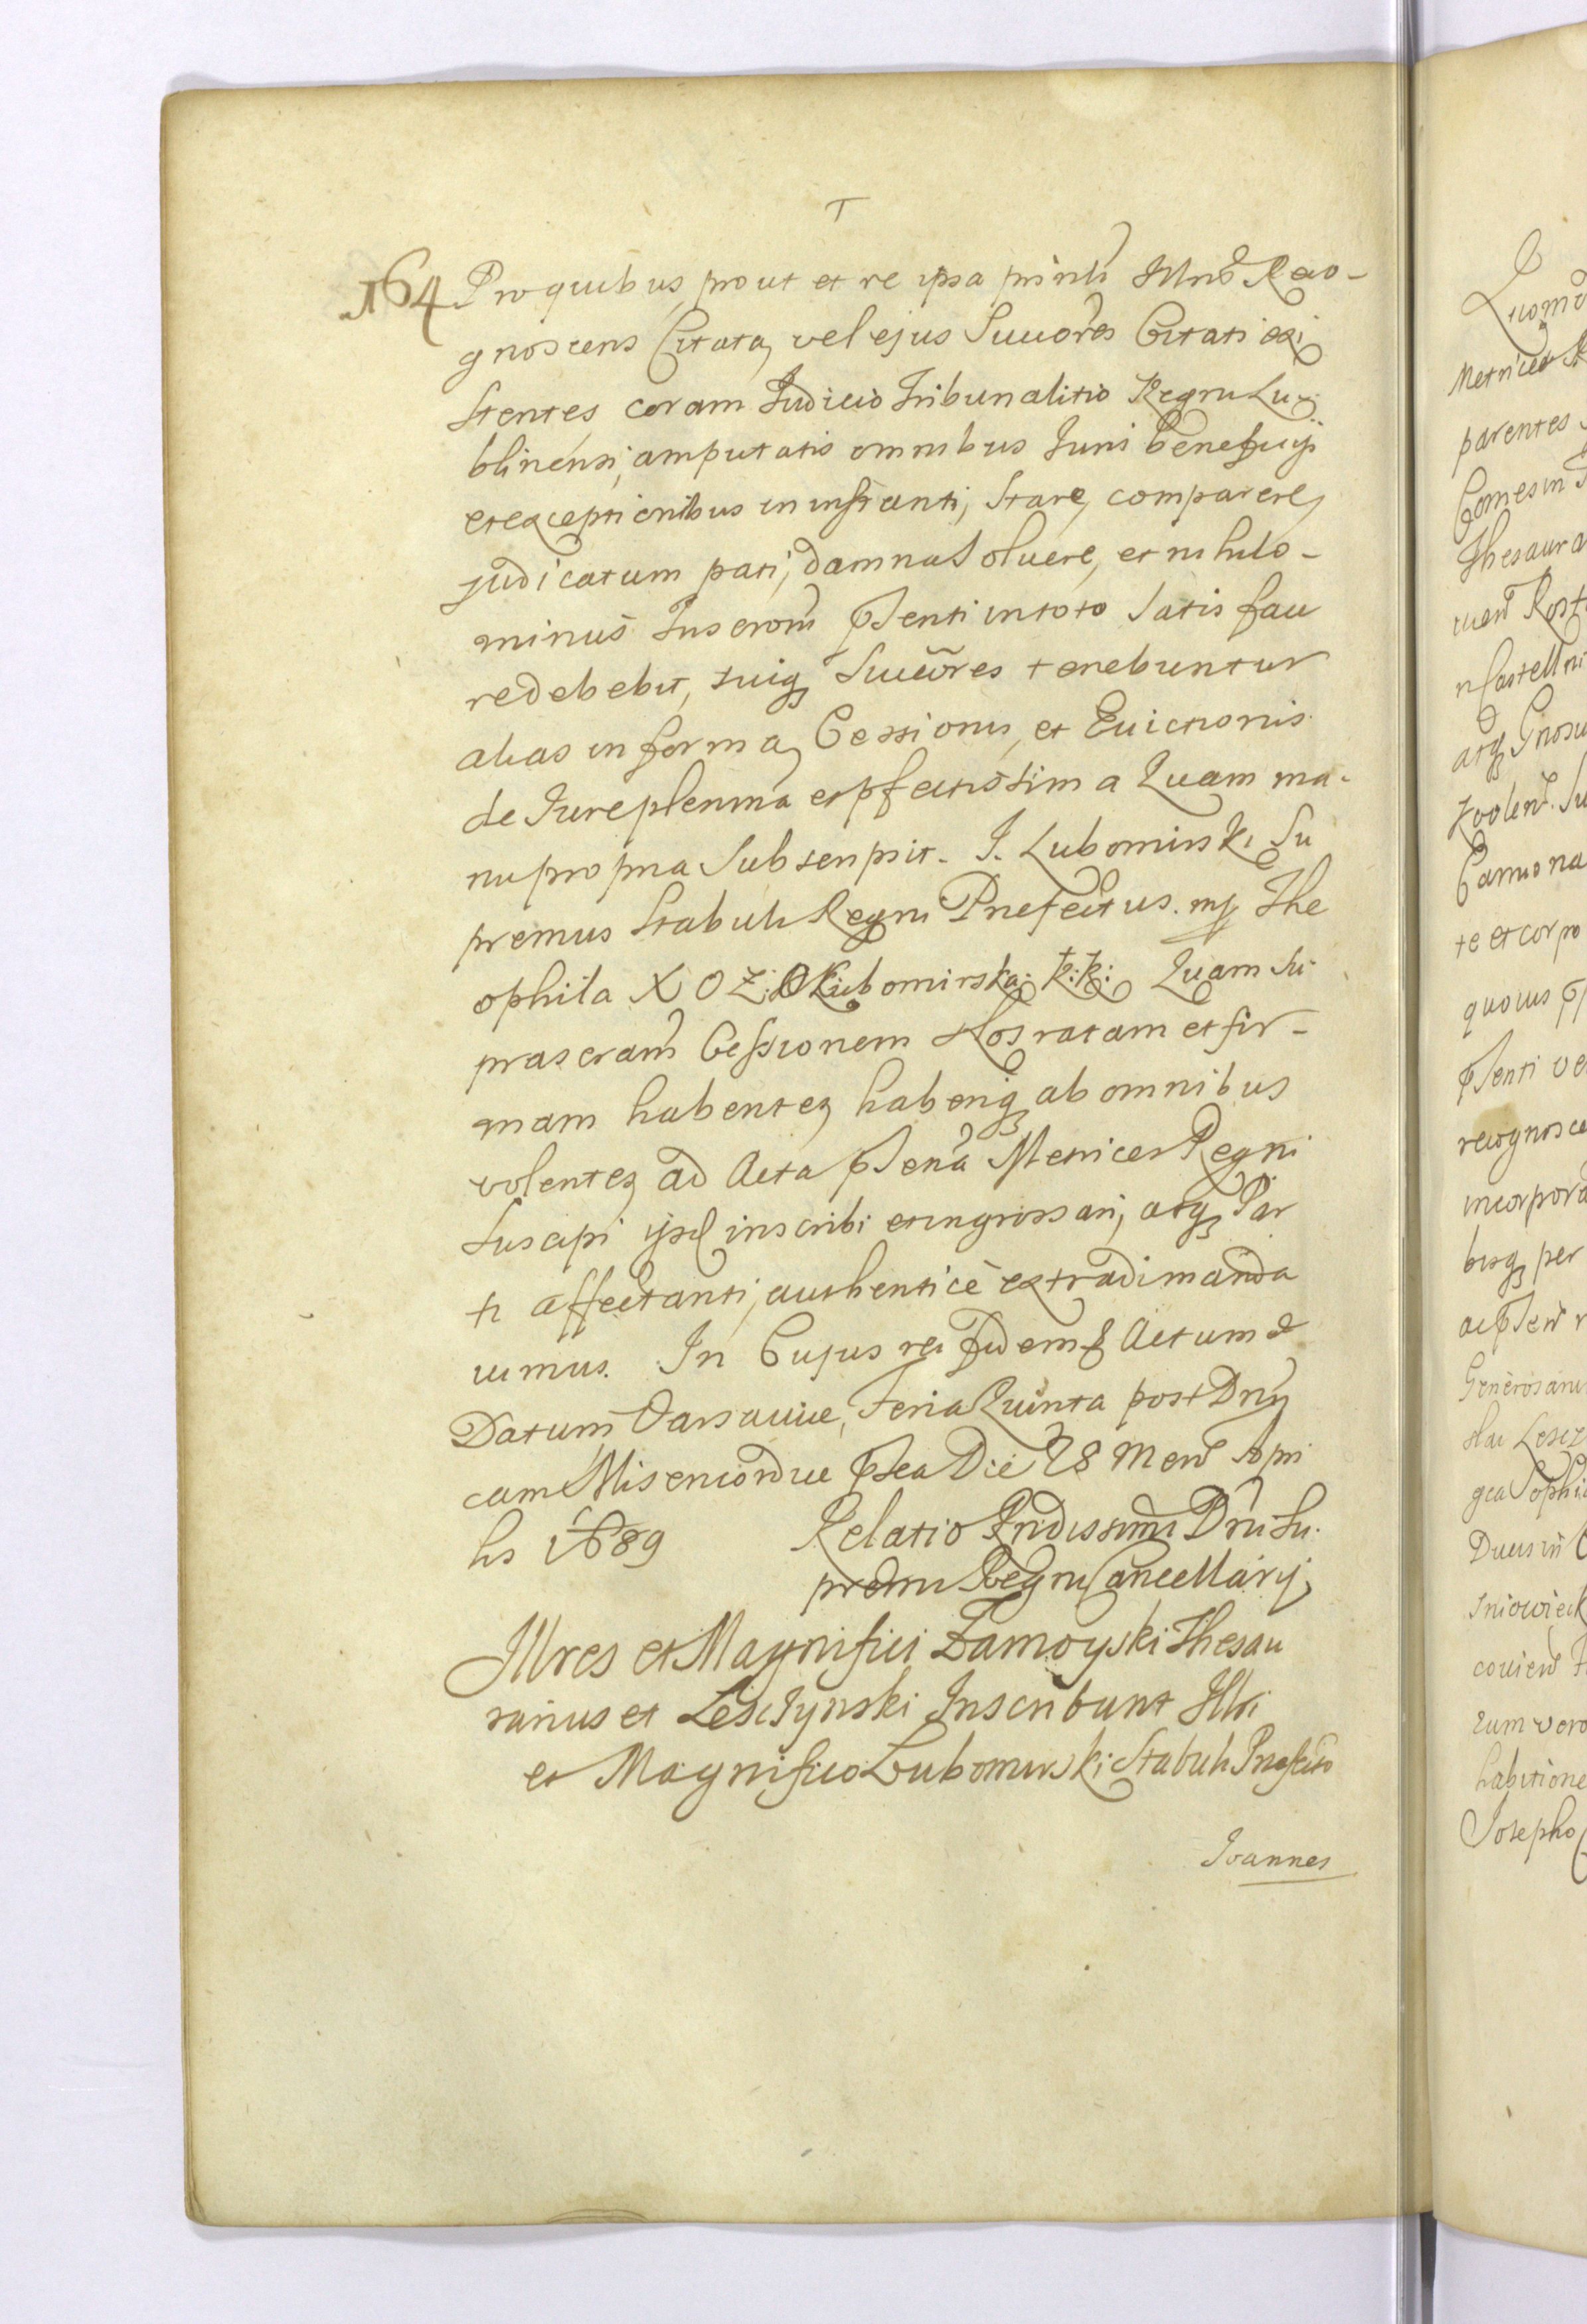 T
164 Pro quibus, prout et re ipsa prmls Illma Reco-
gnoscens Citata, vel ejus Succores Citati exi
stentes coram Judicio Tribunalitio Regni Lu-
blinensi, amputatis omnibus Juris beneficijs
et exceptionibus in instanti, stare, comparere,
judicatum pati, damna solvere, et nihilo-
minus Inscrom pnsenti in toto satisface
re debebit, suiq Succores tenebuntur
alias in forma, Cessionis, et Evictionis
de Jure plenima et pfectissima Quam ma-
nu propria subscripsit. J. Lubomirski Su
premus Stabuli Regni Prefectus. mp The
ophila X O Z: Lubomirska: K: K: Quam su
prascram Cessionem Nos ratam et fir-
mam habentes, haberiq ab omnibus
volentes, ad Acta pnsena Metrices Regni
suscipi ijsd inscribi et ingrossari, atq Par
ti affectanti, authenticè extradi manda
vimus. In Cujus rei fidem & Actum &
Datum Varsaviæ, Feria Quinta post Dnij
cam Misericordiæ pnsea Die 28 Mens Apri
lis 1689
Relatio Rndissimi Dni Su
premi Regni Cancellarij,
Illres et Magnifici Zamoyski Thesau
rarius et Lesczynski Inscribunt Illri
et Magnifico Lubomirski Stabuli Præfecto
Joannes
Quomo
Metrices
parentes
Comes in
Thesaura
n Castellni
atq Gnosu
te et corpo
quovis
pnsenti
recognosce
incorpora
busq per
Generosam
Ducis in
cum vero
habitione
Josepho